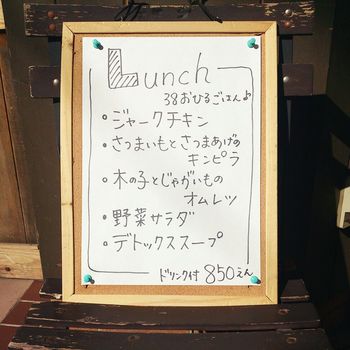 Lunch
38おひるごはん♪
・ジャークチキン
・さつまいもとさつまあげの
キンピラ
・木の子とじゃがいもの
オムレツ
・野菜サラダ
・デトックススープ
ドリンク付 850えん